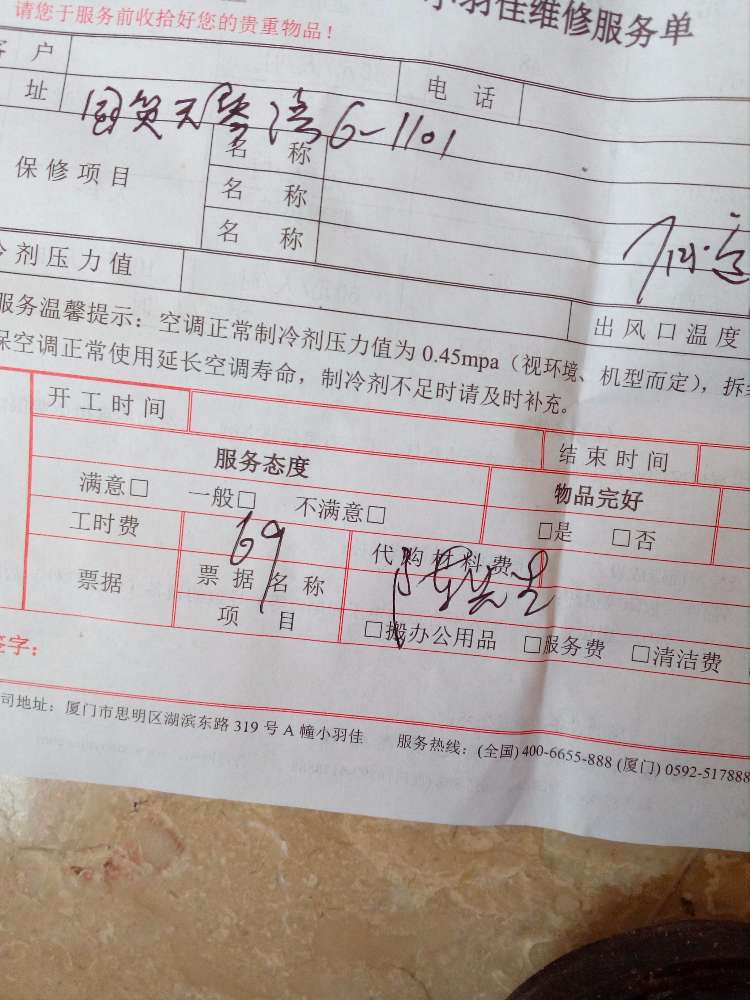 请您于服务前收拾好您的贵重物品！
小羽佳维修服务单
客 户
电 话
址 国贸天琴湾6-1101
保修项目
名 称
名 称
名 称
冷剂压力值
出风口温度
服务温馨提示：空调正常制冷剂压力值为 0.45mpa（视环境、机型而定），拆
保空调正常使用延长空调寿命，制冷剂不足时请及时补充。
开工时间
结束时间
服务态度
物品完好
满意□ 一般□ 不满意□
□是 □否
工时费 69
代购材料费
票据
票据名称
项 目
□搬办公用品 □服务费 □清洁费
签字：
司地址：厦门市思明区湖滨东路 319 号 A 幢小羽佳 服务热线：(全国) 400-6655-888 (厦门) 0592-517888